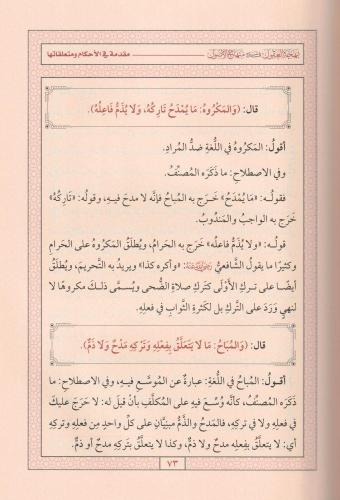 بهجة العقول في منهاج الأصول
مقدمة في الأحكام ومتعلقاتها
قال: (وَالمَكْرُوهُ: مَا يُمْدَحُ تَارِكُهُ، وَلَا يُذَمُّ فَاعِلُهُ).
أقولُ: المَكروهُ في اللُّغةِ ضدُّ المُرادِ.
وفي الاصطلاحِ: ما ذَكَرَه المصنِّفُ.
فقولُـه: «مَا يُمْدَحُ» خَـرج به المُباحُ فإنَّه لا مدحَ فيـهِ، وقولُه: «تَارِكُهُ»
خَرَج به الواجبُ والمَندُوبُ.
قولُـه: «ولا يُذمُّ فاعلُه» خَرَج به الحرامُ، ويُطلَقُ المَكروهُ على الحَرامِ
وكثيرًا ما يقولُ الشَّافعيُّ رَضِيَ اللَّهُ عَنْهُ: «وأكره كذا» ويريدُ به التَّحريمَ، ويُطلَقُ
أيضًا على تـركِ الأَوْلَى كتَركِ صلاةِ الضُّحى ويُسمَّى ذلـك مَكروهًا لا
لنهيٍ وَرَدَ على التَّركِ بل لكَثرةِ الثَّوابِ في فعلِهِ.
قال: (وَالمُبَاحُ: مَا لَا يَتَعَلَّقُ بِفِعْلِهِ وَتَرْكِهِ مَدْحٌ وَلَا ذَمٌّ).
أقـولُ: المُباحُ في اللُّغةِ: عبارةٌ عن المُوسَّـعِ فيـهِ، وفي الاصطلاحِ: ما
ذَكَرَه المصنِّفُ، كأنَّه وُسِّعَ فيه على المُكلَّفِ بأن قيلَ له: لا حَرَجَ عليكَ
في فِعلِه ولا في تركِه، فالمَدحُ والذَّمُّ مبنيَّانِ على كلِّ واحدٍ مِن فعلِه وتركِه
أي: لا يتعلَّقُ بفِعلِه مدحٌ ولا ذمٌّ، وكذا لا يتعلَّقُ بتَركِه مدحٌ أو ذمٌّ.
٧٣